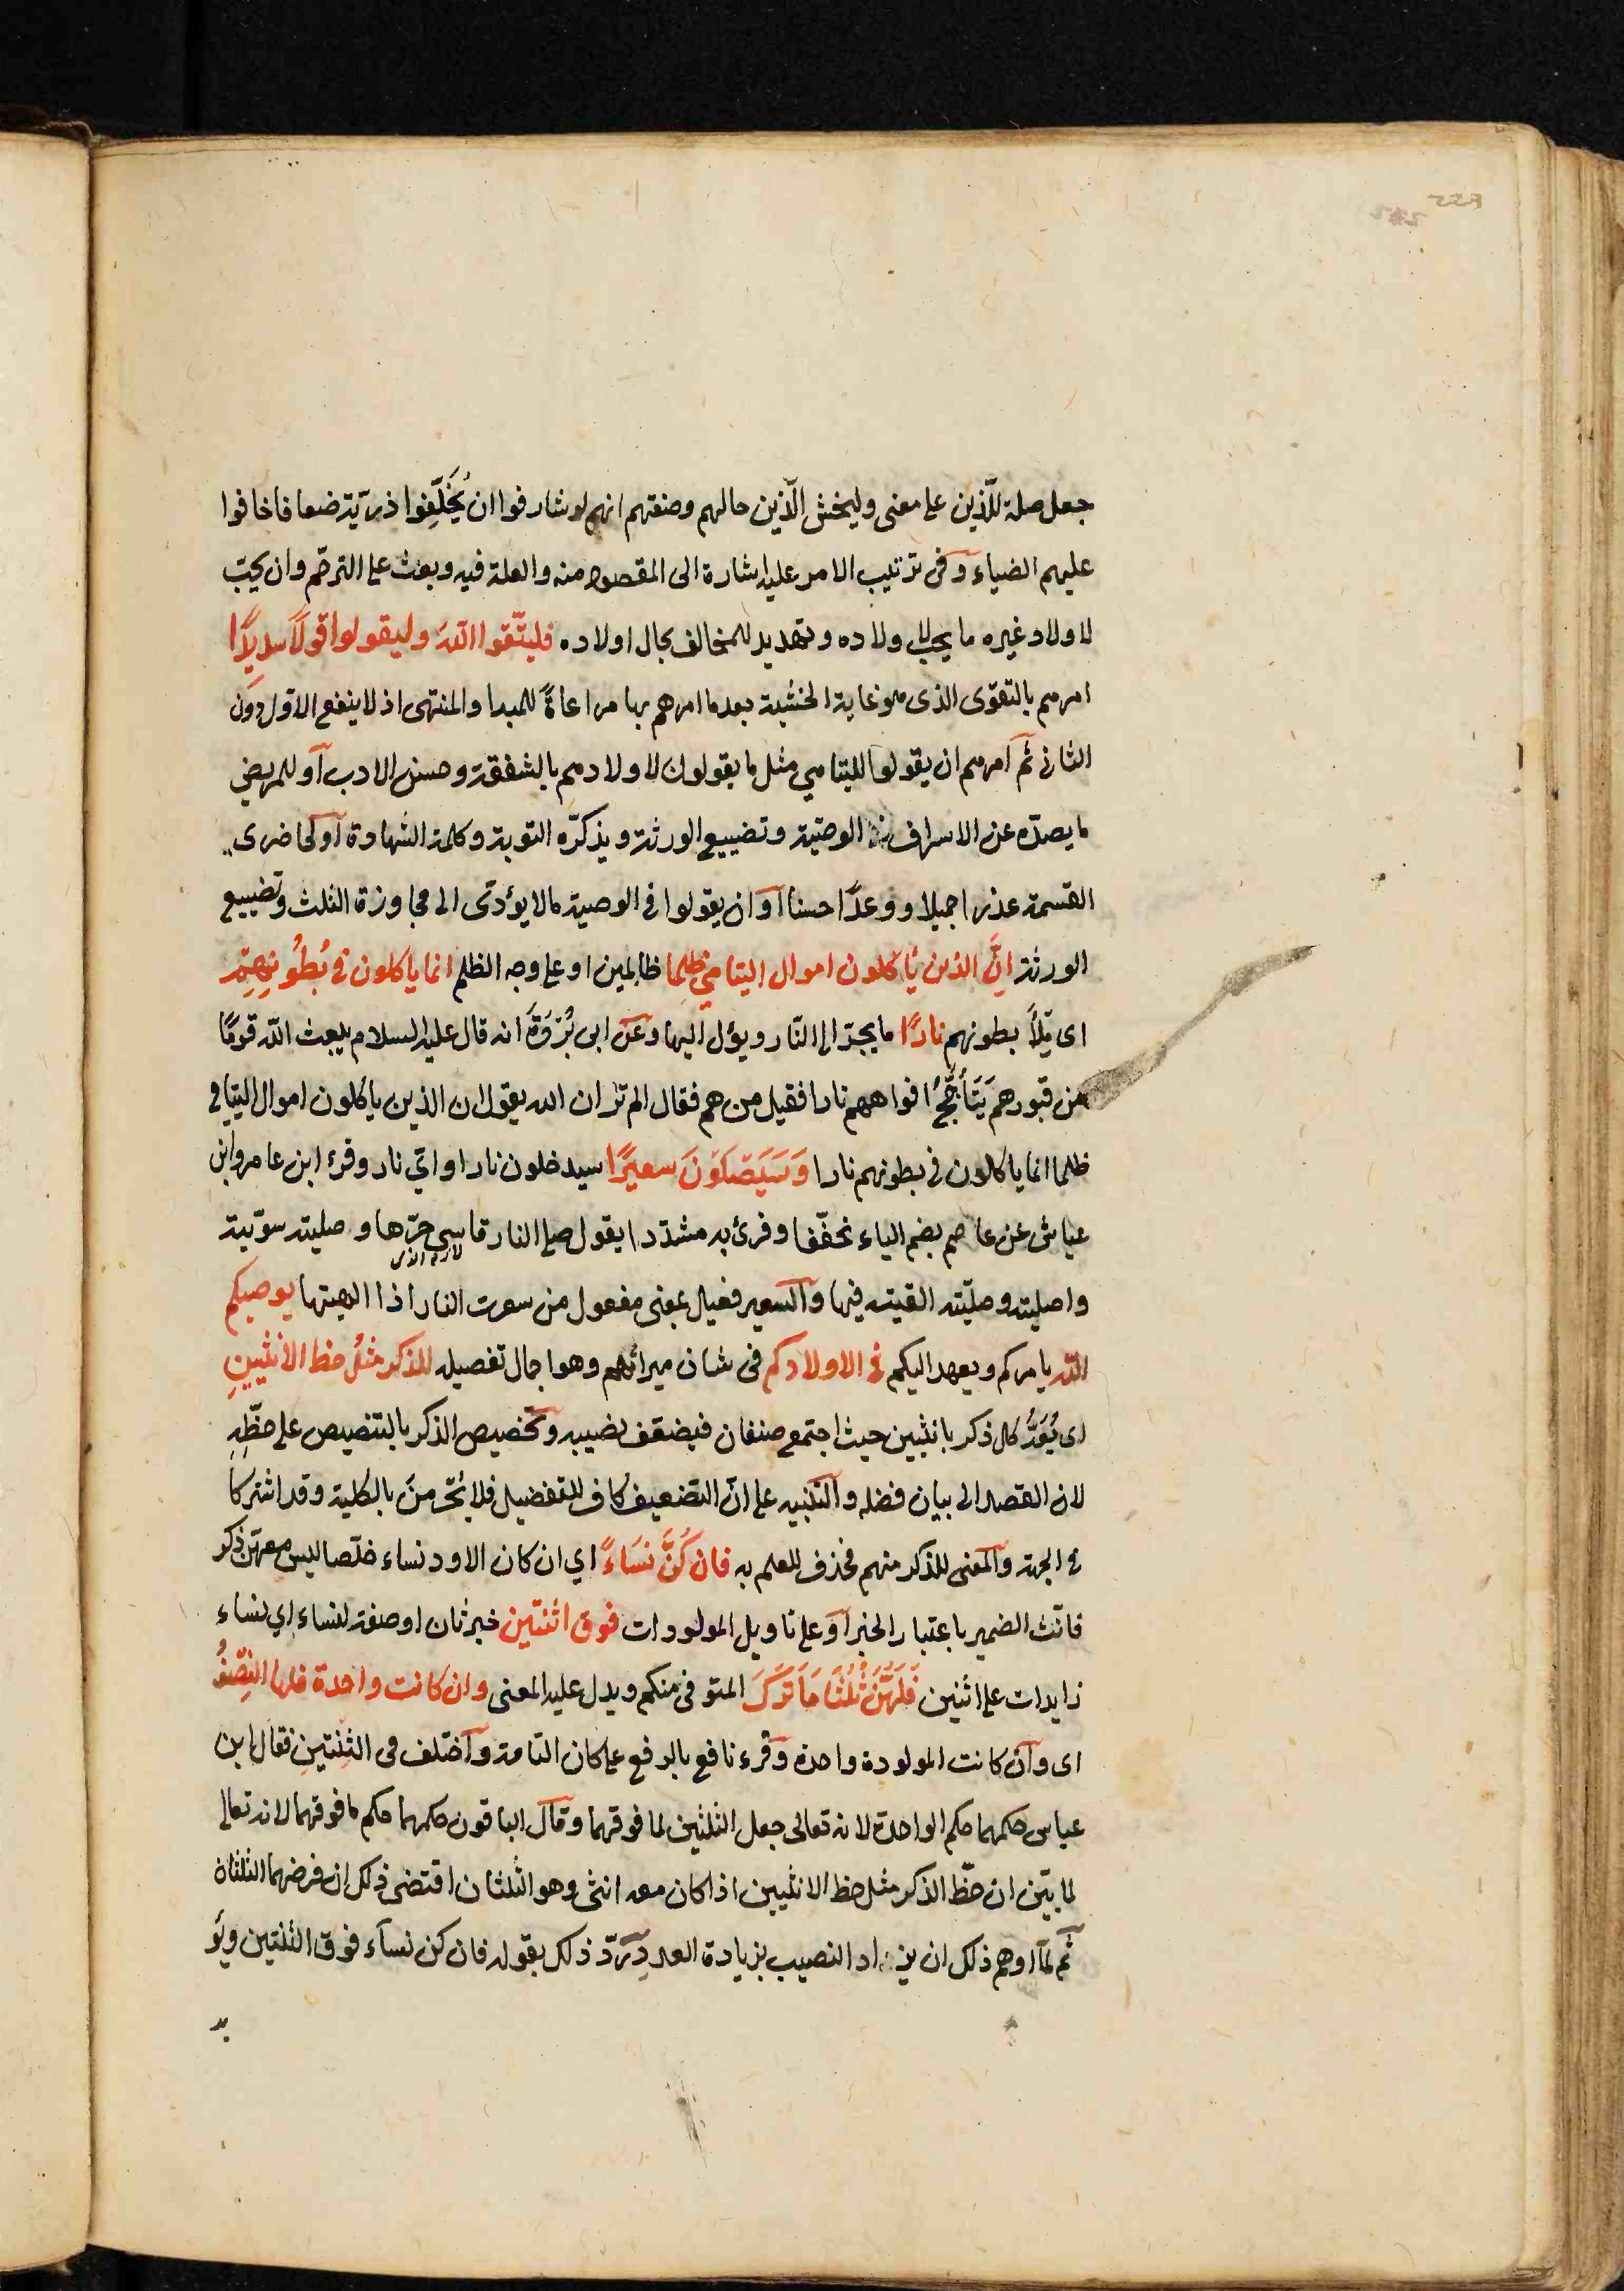 جعل صلة للّذين على معنى وليخش الّذين حالهم وصفتهم انهم لو شارفوا ان يُخَلِّفوا ذرّيّة ضعافا خافوا
عليهم الضياع وفى ترتيب الامر عليه اشارة الى المقصود منه والعلة فيه وبعث على الترحّم وان يحبّ
لاولاد غيره ما يحب لاولاده وتهديد للمخالف بحال اولاده فليتّقوا الله وليقولوا قولًا سديدًا
امرهم بالتقوى الذى هو غاية الخشية بعدما امرهم بها مراعاةً للمبدا والمنتهى اذ لا ينفع الاول دون
الثانى ثم امرهم ان يقولوا لليتامى مثل ما يقولون لاولادهم بالشفقة وحسن الادب او للمريض
ما يصدّه عن الاسراف فى الوصيّة وتضييع الورثة ويذكّره التوبة وكلمة الشهادة او لحاضرى
القسمة عذرا جميلا ووعدًا حسنا او ان يقولوا فى الوصية مالا يؤدّى الى مجاوزة الثلث وتضييع
الورثة انَّ الذين يأكلون اموال اليتامى ظلما ظالمين او على وجه الظلم انما ياكلون فى بُطُونِهِمْ
اى مِلْأَ بطونهم نارًا ما يجرّ الى النّار ويؤل اليها وعن ابى بُرْدَةَ انه قال عليه السلام يبعث الله قومًا
من قبورهم يَتَأَجَّجُ افواههم نارا فقيل من هم فقال الم تر ان الله يقول ان الذين ياكلون اموال اليتامى
ظلما انما ياكلون فى بطونهم نارا وَسَيَصْلَوْنَ سعيرًا سيدخلون نارا واىّ نار وقرء ابن عامر وابن
عياش عن عاصم بضم الياء مخفّفا وقرئ به مشدّدا يقول صلى النار قاسى حرّها وصليته سوّيته
واصليته وصلّيته القيته فيها والسعير فعيل بمعنى مفعول من سعرت النار اذا الهبتها يوصيكم
الله يامركم ويعهد اليكم فى الاولادكم فى شان ميراثهم وهو اجمال تفصيله للذكر مثلُ حظ الانثيينِ
اى يُعَدُّ كل ذكر بانثيين حيث اجتمع صنفان فيضعّف نصيبه وتخصيص الذكر بالتنصيص على حظّهِ
لان القصد الى بيان فضله والتنبيه على انّ التضعيف كاف للتفضيل فلا يُحْرَمنَ بالكلية وقد اشتركا
فى الجهة والمعنى للذكر منهم فحذف للعلم به فان كُنَّ نسَاءً اي ان كان الاود نساء خلّصا ليس معهنّ ذكر
فانّث الضمير باعتبار الخبر او على تاويل المولودات فوق اثنتين خبر ثان او صفة لنساء اي نساء
زايدات على اثنين فَلَهُنَّ ثُلُثَا مَا تَرَكَ المتوفى منكم ويدل عليه المعنى وان كانت واحدة فلها النِصْفُ
اى وان كانت المولودة واحدة وقرء نافع بالرفع على كان التامة واختلف فى الثِنْتينِ فقال ابن
عباس حكمهما حكم الواحدة لانه تعالى جعل الثلثين لما فوقهما وقال الباقون حكمهما حكم ما فوقهما لانه تعالى
لما بيّن ان حظّ الذكر مثل حظ الانثيين اذا كان معه انثى وهو الثلثان اقتضى ذلك ان فرضهما الثلثان
ثم لما اوهم ذلك ان يزاد النصيب بزيادة العدد رَدّ ذلك بقوله فان كن نسآء فوق اثنتين ويؤ
يد